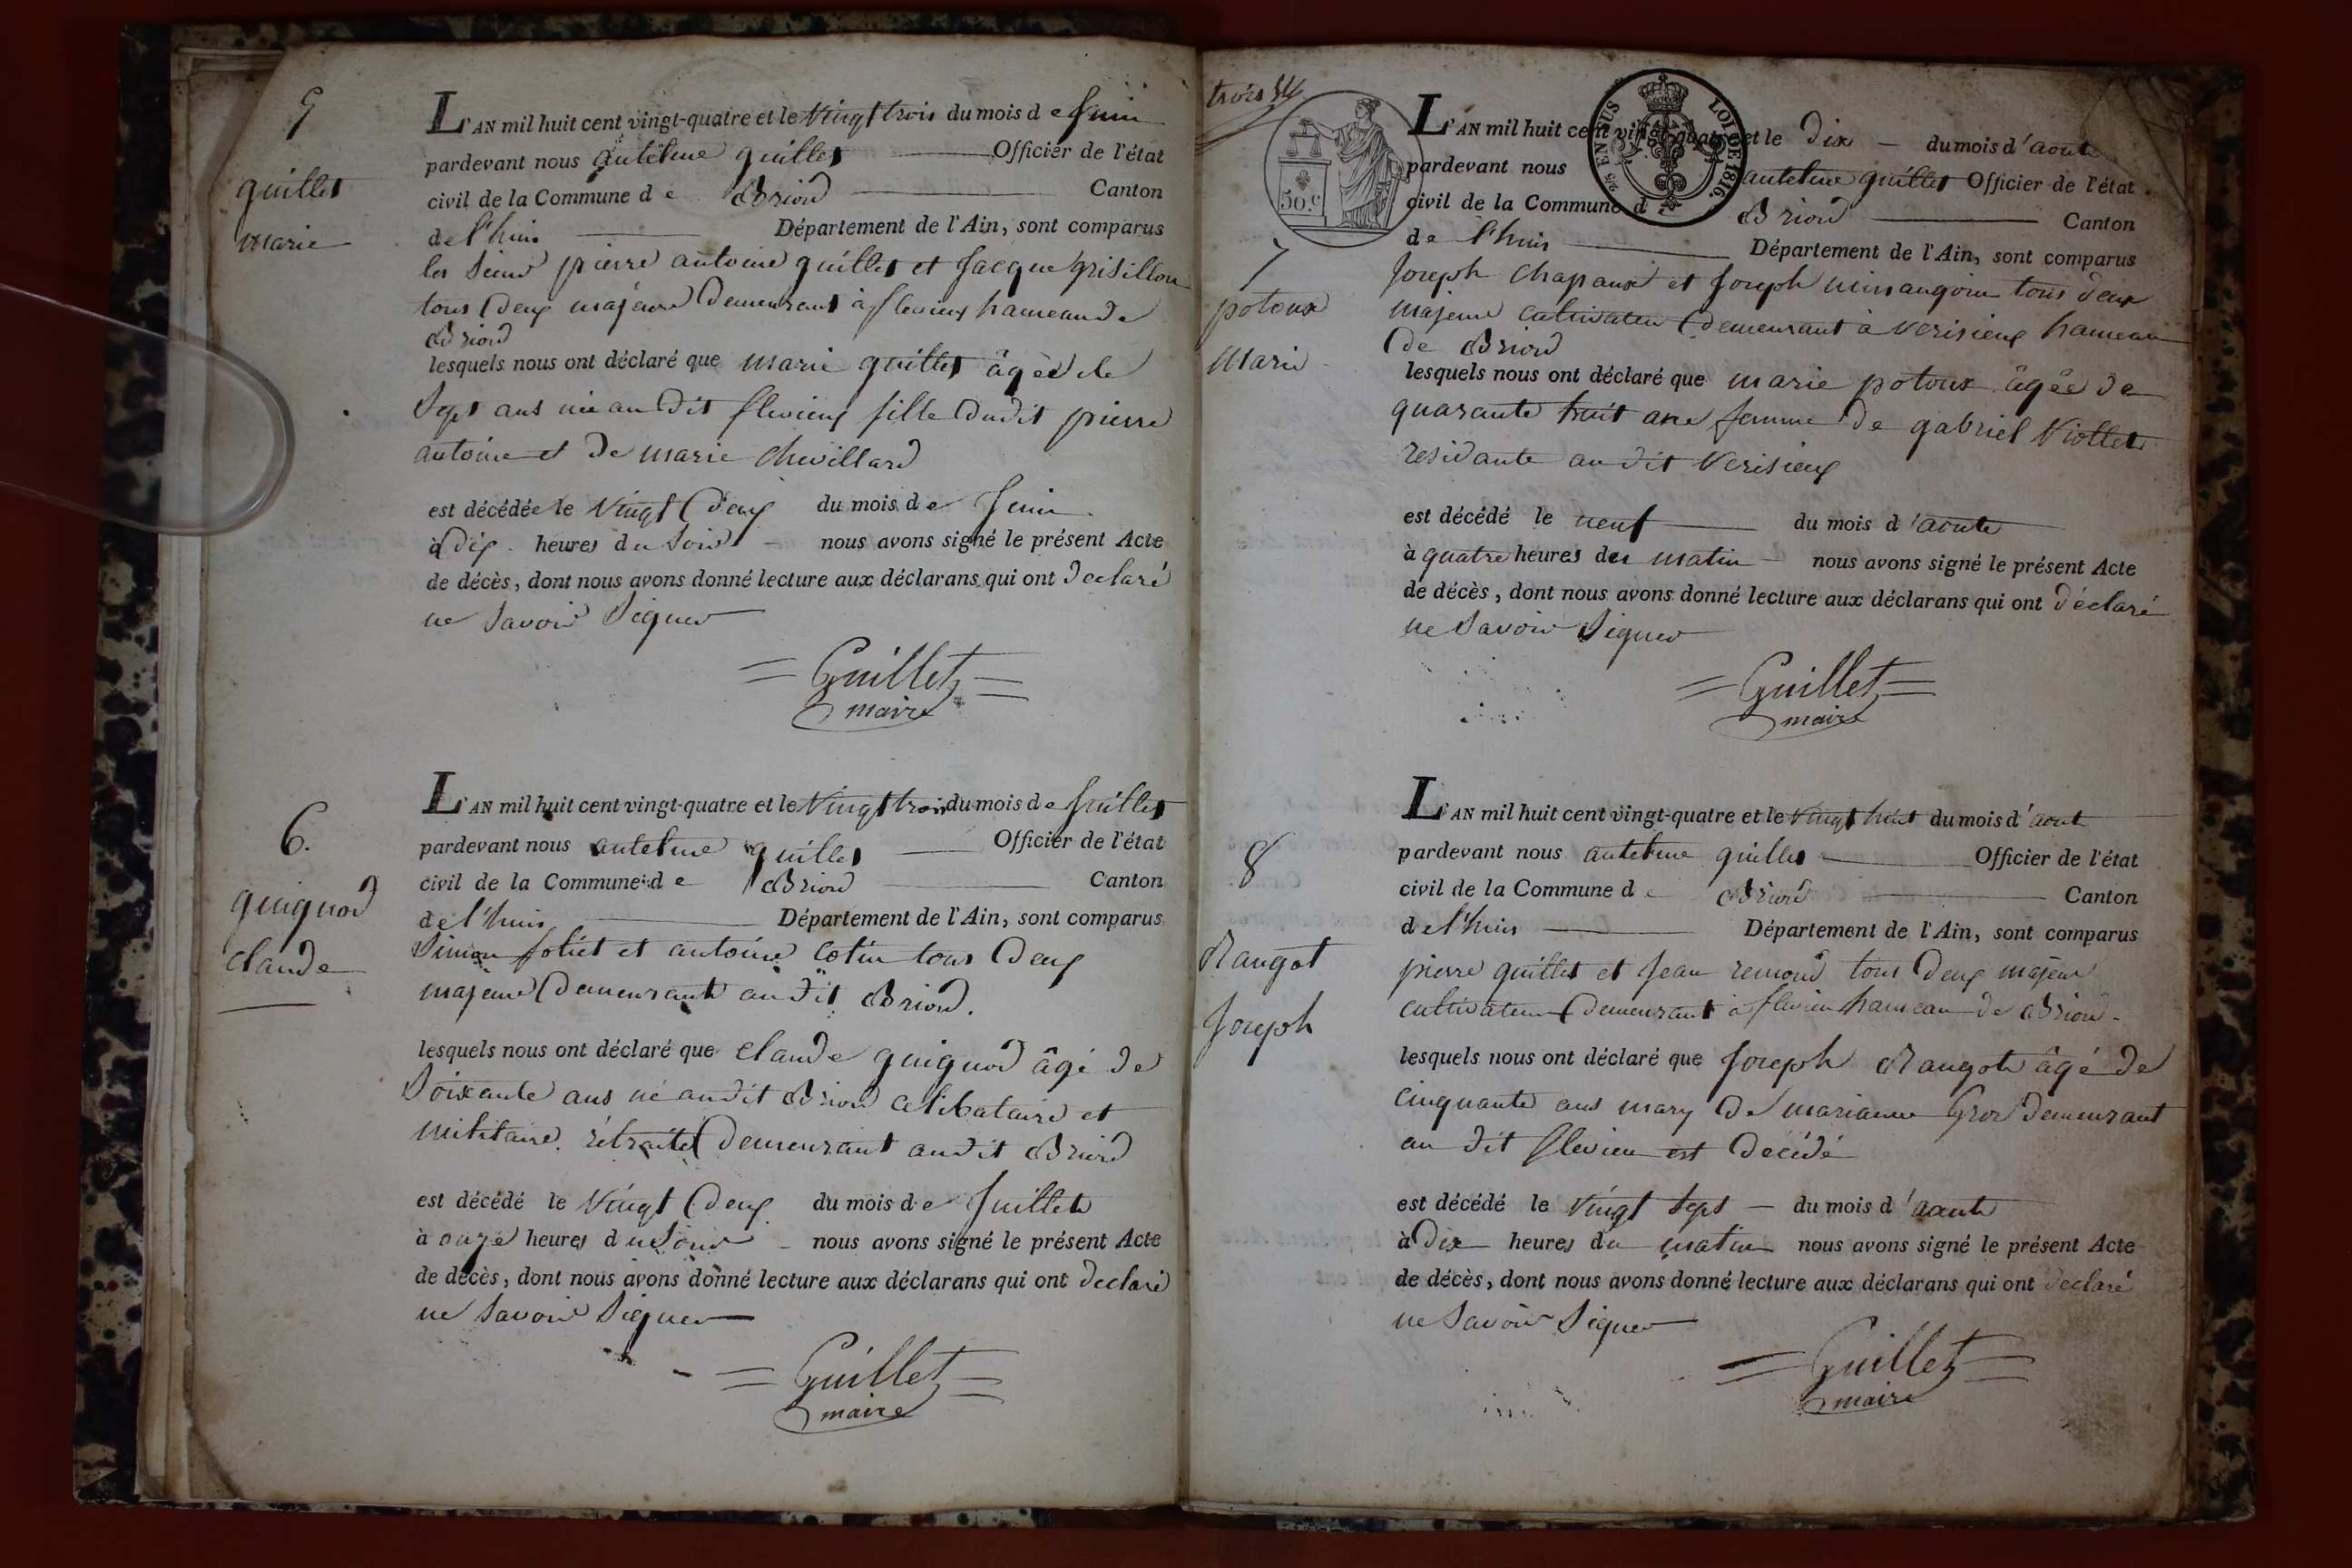 5
guillet
marie
L'AN mil huit cent vingt-quatre et le vingt trois du mois de juin
pardevant nous antelme guillet Officier de l'état
civil de la Commune de Briord Canton
de l'huis Département de l'Ain, sont comparus
les sieurs pierre antoine guillet et jacque grisillon
tous deux majeurs demeurant à flevieux hameau de
Briord
lesquels nous ont déclaré que marie guillet âgée de
sept ans née au dit flevieux fille dudit pierre
antoine et de marie chevillard
est décédée le vingt deux du mois de juin
à dix heures du soir nous avons signé le présent Acte
de décès, dont nous avons donné lecture aux déclarans qui ont declaré
ne savoir signer
Guillet
maire
6.
guignod
claude
L'AN mil huit cent vingt-quatre et le vingt trois du mois de juillet
pardevant nous antelme guillet Officier de l'état
civil de la Commune de Briord Canton
de l'huis Département de l'Ain, sont comparus
simon et antoine cotin tous deux
majeurs demeurants au dit Briord.
lesquels nous ont déclaré que claude guignod âgé de
soixante ans né au dit Briord celibataire et
militaire rétraité demeurant au dit Briord
est décédé le vingt deux du mois de juillet
à onze heures du soir nous avons signé le présent Acte
de décès, dont nous avons donné lecture aux déclarans qui ont declaré
ne savoir signer
Guillet
maire
trois
50.c
25 EN SUS LOI DE 1816.
7
potoux
marie
L'AN mil huit cent vingt-quatre et le dix du mois d'aout
pardevant nous antelme guillet Officier de l'état
civil de la Commune d Briord Canton
de l'huis Département de l'Ain, sont comparus
joseph chapaux et joseph tous deux
majeurs cultivateurs demeurant à verisieux hameau
de Briord
lesquels nous ont déclaré que marie potoux âgée de
quarante huit ans femme de gabriel viollet
residante au dit verisieux
est décédé le neuf du mois d'aoute
à quatre heures du matin nous avons signé le présent Acte
de décès, dont nous avons donné lecture aux déclarans qui ont déclaré
ne savoir signer
Guillet
maire
8
Rangot
joseph
L'AN mil huit cent vingt-quatre et le vingt huit du mois d'aout
pardevant nous antelme guillet Officier de l'état
civil de la Commune de Briord Canton
de l'huis Département de l'Ain, sont comparus
pierre guillet et jean remond tous deux majeurs
cultivateurs demeurant à flevieu hameau de Briord
lesquels nous ont déclaré que joseph Rangot âgé de
cinquante ans mary de marianne Gros demeurant
au dit flevieu est decédé
est décédé le vingt sept du mois d'aoute
à dix heures du matin nous avons signé le présent Acte
de décès, dont nous avons donné lecture aux déclarans qui ont declaré
ne savoir signer
Guillet
maire